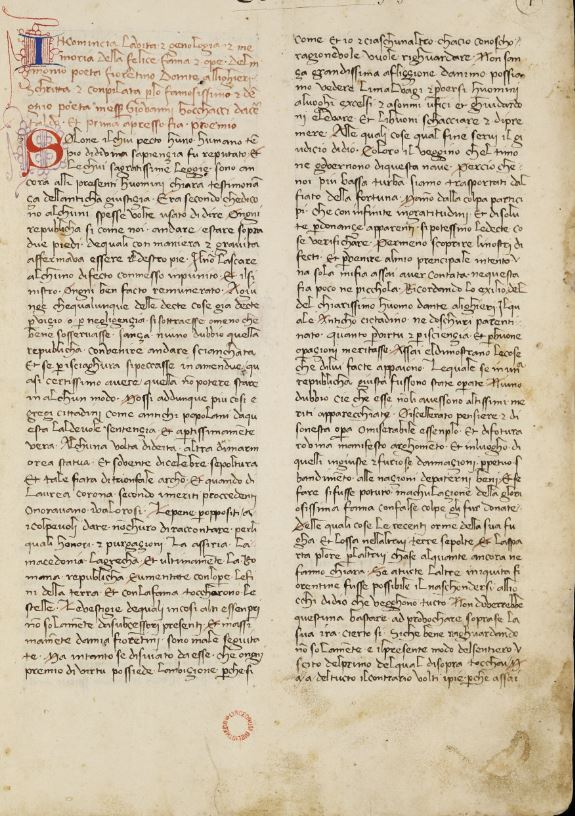 Incomincia La vita z genologia z me
moria della felice fama z ope del m
poeta fiorentino Dante allighieri
Schritta z conpilata p lo famosissimo z de
gnio poeta mess Giovanni bocchacci da cer
taldo Et prima apresso fia proemio
Solone il chui pecto huno humano te
pio di divina sapienzia fu reputato Et
Le chui sagratissime Leggie sono an
cora alli presenti huomini chiara testimonia
ça dell anticha giustitia Era secondo che dico
no alchuni spesse volte usato di dire Ongni
republicha si come noi andare z stare sopra
due piedi de quali con maniera z gravita
affermava essere il destro pie Il no lascare
alchuno difecto commesso inpunito Et il si
nistro Ongni ben facto remunerato
che qualunque delle decte cose gia decte
p vizio o p negligenzia si sottraesse o meno che
bene sosservasse sança niuno dubbio quella
republicha convenire andare scianchata
Et se p isciaghura si peccasse in amendue qu
asi certissimo avere quella no potere stare
in alchun modo Mossi addunque piu cosi e
gregi cittadini come antichi popolani da qu
esta laldevole sentenzia et aptissimamente
vera Alchuna volta di deita altra di marm
orea statua Et sovente di celebre sepoltura
Et tale fiata di triunfale archo Et quando di
Laurea corona secondo i meriti procedenti
Onoravano i valorosi Le pene p oppositi a
i colpevoli dare no churo di raccontare per li
quali honori z purgazioni La assiria La
macedonia La grecha Et ultimamente la Ro
mana republicha aumentate con l ope Le fi
ni della terra Et con la fama toccharono Le
stelle Le vestigie de quali in cosi alti essempi
no solamete da successori presenti Et massi
mamete da mia fiorētini sono male seguita
te Ma in tanto se disviato da esse che ongni
premio di virtu possiede L anbizione p che si
come Et io z ciaschun altro chacio conoscho
ragionevole vuole righuardare Non san
ça grandissima afflizione danimo possia
mo vedere Li malvagi z perversi huomini
a luoghi excelsi z a sommi ufici er ghuidardo
ni elevare Et Li buoni schacciare z dipre
mere Alle quali cose qual fine servi il g
iudicio didio Coloro il veggino che l timo
ne ghovernono di questa nave Percio che
noi piu bassa turba siamo trasportati dal
fiato della fortuna Ma no dalla colpa partici
pi che con infinite ingratitudini Et disolu
te perdonanze apparenti si potessino le decte co
se verificare Per meno scoprire li nostri di
fecti Et p venire al mio principale intento u
na sola mi fia assai aver contata ne questa
fia poco ne picchola Ricordando Lo exilio del
del chiarissimo huomo dante alighieri Il qu
ale Anticho cictadino ne doschuri parenti
nato quanto p virtu z p iscienzia Et p buone
opazioni meritasse Assai el dimostrano Le cose
che da lui facte appaiono Le quale se in un a
republicha giusta fussono state operate Niuno
dubbio cie che esse no li avessono altissimi me
riti apparecchiate O iscellerato pensiere z di
sonesta opa O miserabile essenplo Et di fotura
rovina manifesto arghomento Et in luogho di
quelli ingiuste z furiose dannazioni p petuo s
bandimento alle nazioni de paterni beni Et se
fare si fusse potuto machulazione della glori
osissima fama con false colpe gli fur donate
Delle quali cose Le recenti orme della sua fu
gha Et Lossa nell altrui terre sepolte Et La spa
rta prole p l altrui chase al quante ancora ne
fanno chiara Se a tucte L altre iniquita fi
orentine fusse possibile il naschondersi alli o
cchi didio che vegghano tucto Non doverrebbe
questa una bastare ad provochare sopra se La
sua ira cierto si Siche bene raghuardando
no solamete e il presente modo del sentiero u
scito del primo del qual di sopra tocchai M
a a del tucto il contrario volti i pie p che assai